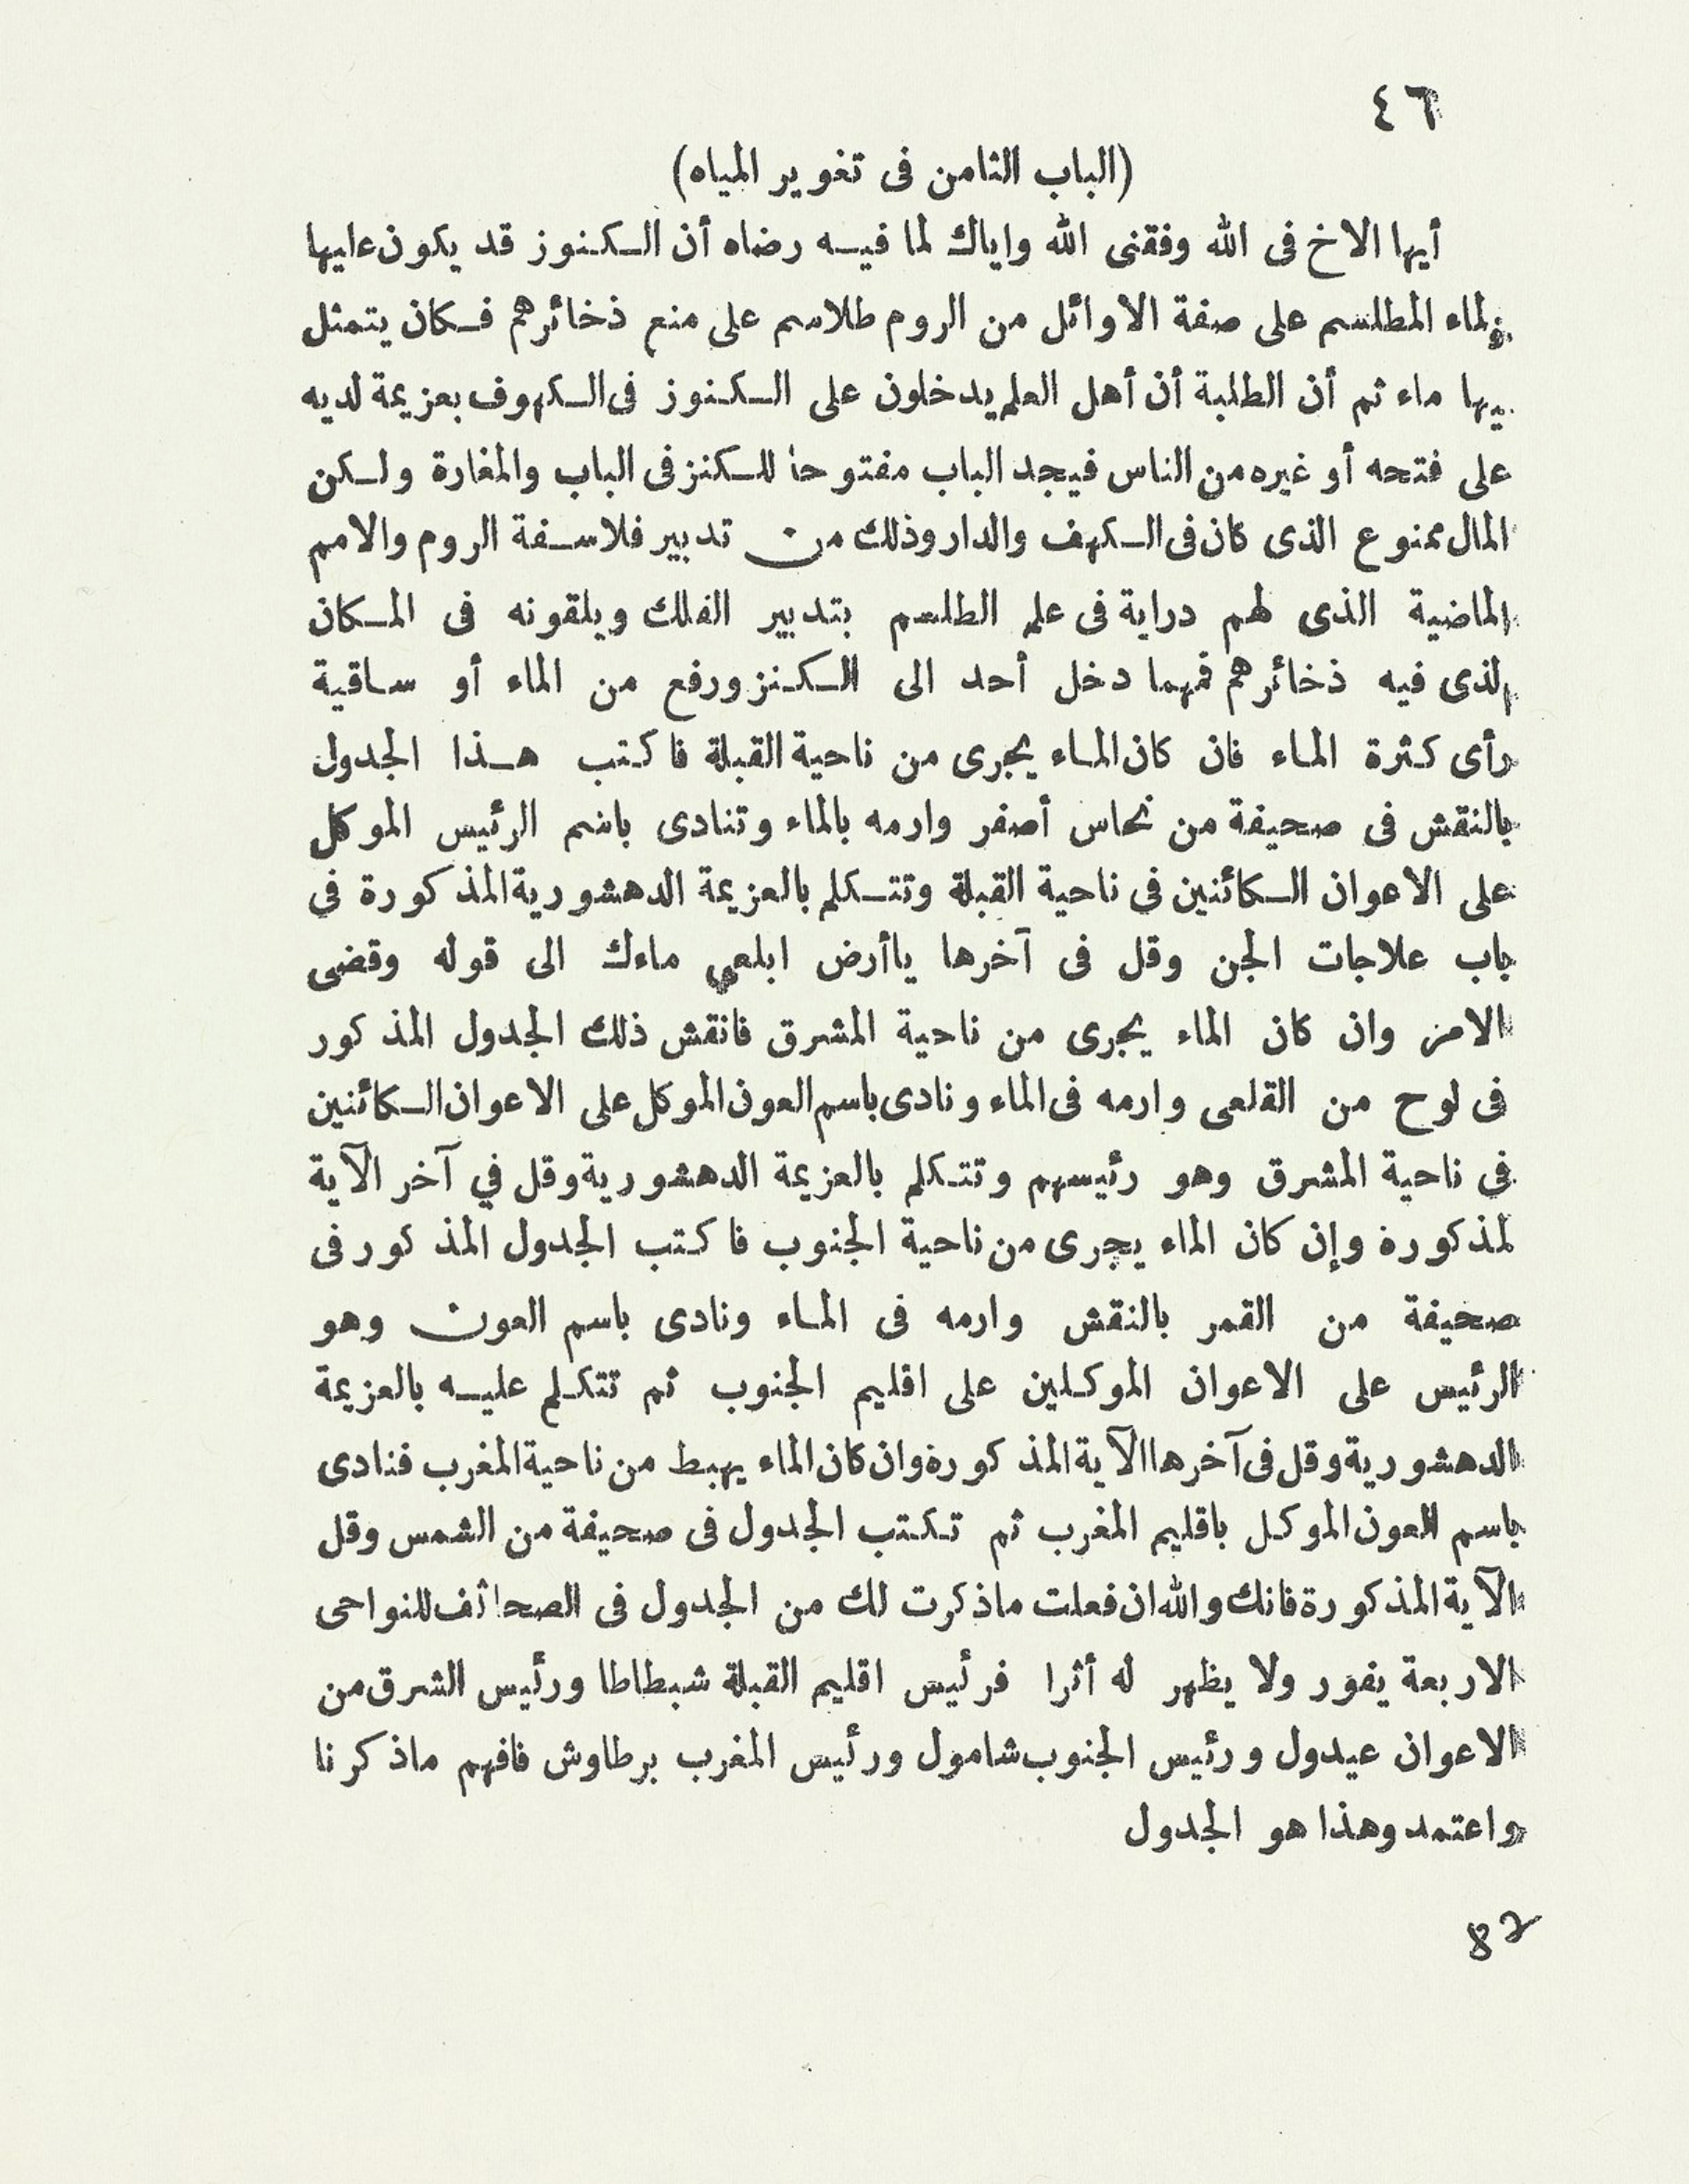 ٤٦
(الباب الثامن فى تغوير المياه)
أيها الاخ فى الله وفقنى الله واياك لما فيه رضاه أن الكنوز قد يكون عليها
المطلسم على صفة الاوائل من الروم طلاسم على منع ذخائرهم فكان يتمثل
ماء ثم أن الطلبة أن أهل العلم يدخلون على الكنوز فى الكهوف بعزيمة لديه
على فتحه أو غيره من الناس فيجد الباب مفتوحا للكنز فى الباب والمغارة ولكن
المال ممنوع الذى كان فى الكهف والدار وذلك من تدبير فلاسفة الروم والامم
الماضية الذى لهم دراية فى علم الطلسم بتدبير الفلك ويلقونه فى المكان
الذى فيه ذخائرهم فمهما دخل أحد الى الكنز ورفع من الماء أو ساقية
رأى كثرة الماء فان كان الماء يجرى من ناحية القبلة فاكتب هذا الجدول
بالنقش فى صحيفة من نحاس أصفر وارمه بالماء وتنادى باسم الرئيس الموكل
على الاعوان الكائنين فى ناحية القبلة وتتكلم بالعزيمة الدهشورية المذكورة فى
باب علاجات الجن وقل فى آخرها ياأرض ابلعى ماءك الى قوله وقضى
الامر وان كان الماء يجرى من ناحية المشرق فانقش ذلك الجدول المذكور
فى لوح من القلعى وارمه فى الماء ونادى باسم العون الموكل على الاعوان الكائنين
فى ناحية المشرق وهو رئيسهم وتتكلم بالعزيمة الدهشورية وقل في آخر الآية
لمذكورة وإن كان الماء يجرى من ناحية الجنوب فاكتب الجدول المذكور فى
صحيفة من القمر بالنقش وارمه فى الماء ونادى باسم العون وهو
الرئيس على الاعوان الموكلين على اقليم الجنوب ثم تتكلم عليه بالعزيمة
الدهشورية وقل فى آخرها الآية المذكورة وان كان الماء يهبط من ناحية المغرب فنادى
باسم العون الموكل باقليم المغرب ثم تكتب الجدول فى صحيفة من الشمس وقل
الآية المذكورة فانك والله ان فعلت ماذكرت لك من الجدول فى الصحائف للنواحى
الاربعة يغور ولا يظهر له أثرا فرئيس اقليم القبلة شبطاطا ورئيس الشرق من
الاعوان عيدول ورئيس الجنوب شامول ورئيس المغرب برطاوش فافهم ماذكرنا
واعتمد وهذا هو الجدول